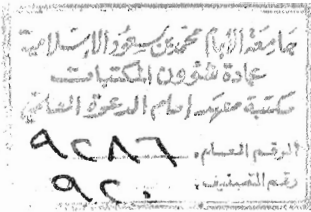 جامعة الإمام محمد بن سعود الإسلامية
عمادة شؤون المكتبات
مكتبة معهد إمام الدعوة العلمي
الرقم العام. ٩٢٨٦
رقم التصنيف. ٩٢٠